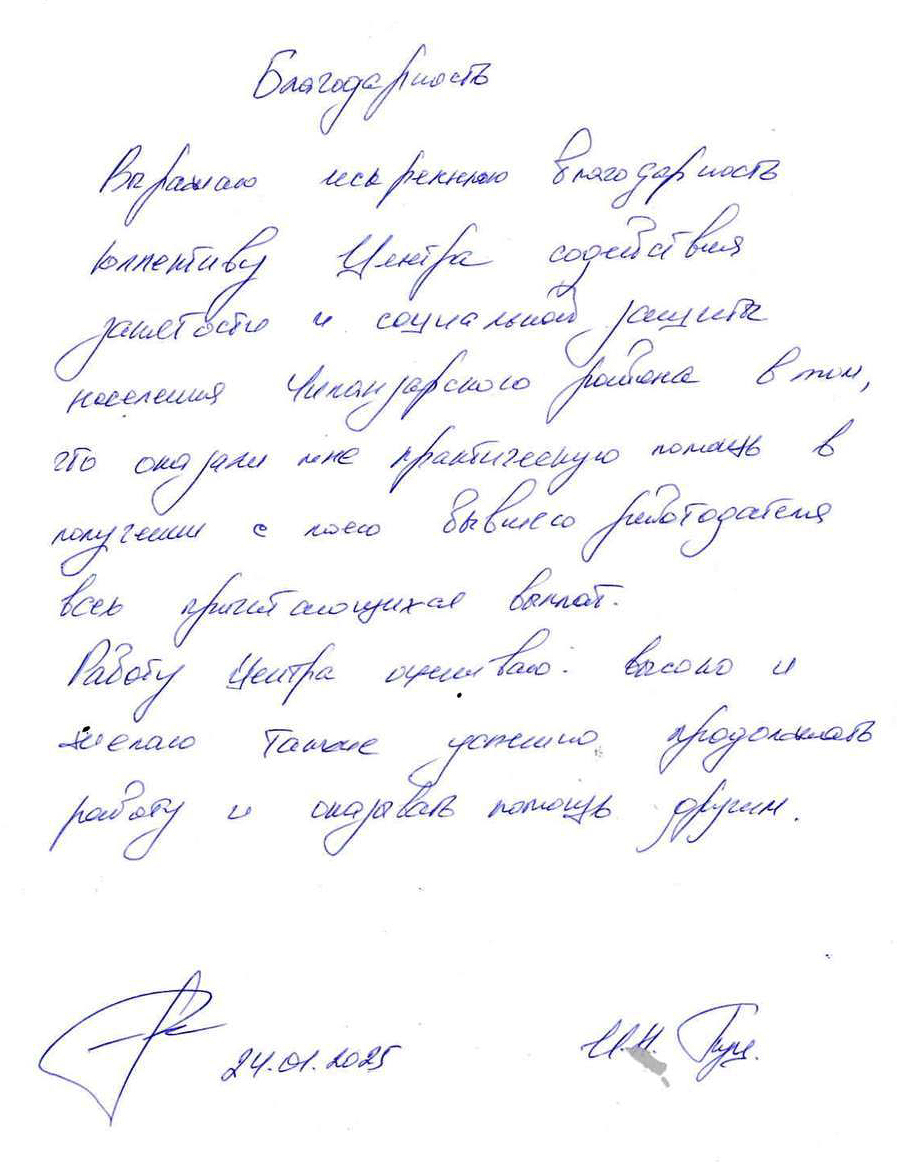 Благодарность
Выражаю искреннюю благодарность
коллективу Центра содействия
занятости и социальной защиты
населения Чиланзарского района в том,
что оказали мне практическую помощь в
получении с моего бывшего работодателя
всех причитающихся выплат.
Работу Центра оцениваю высоко и
желаю также успешно продолжать
работу и оказывать помощь другим.
24.01.2025
И.Н.